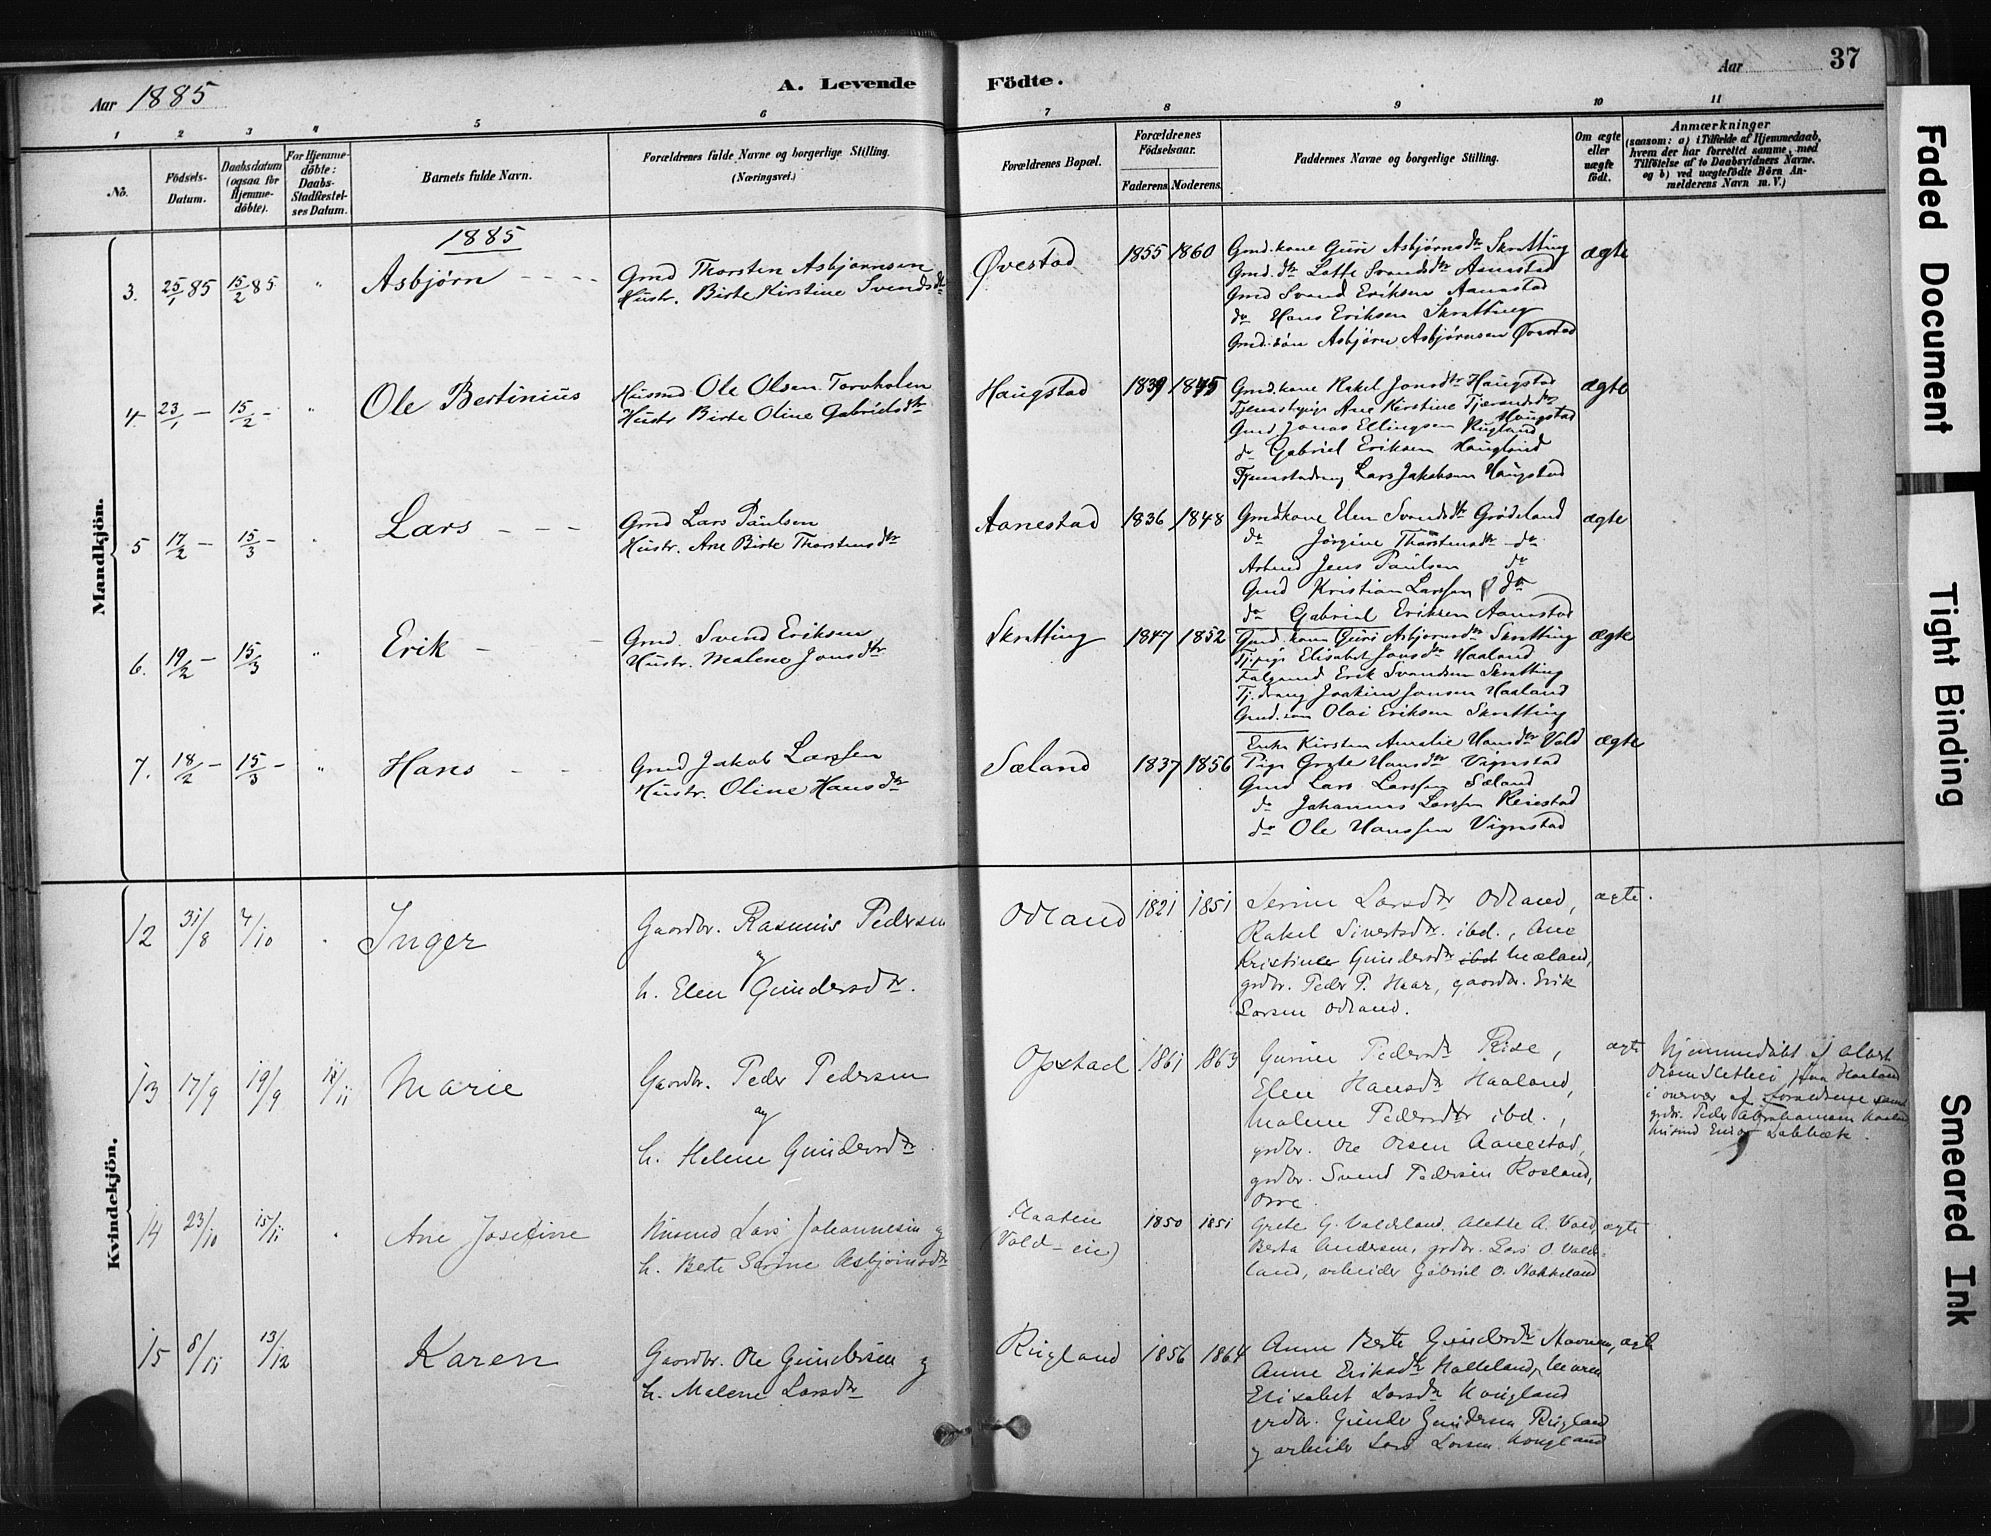 Aar 1885
A. Levende
Födte.
Aar
37
1
2
3
4
5
6
7
8
9
10
11
No.
Födsels-Datum.
Daabsdatum (ogsaa for Hjemme-döbte).
For Hjemme-döbte: Daabs-Stadfæstel-ses Datum.
Barnets fulde Navn.
Forældrenes fulde Navne og borgerlige Stilling.
(Næringsvei.)
Forældrenes Bopæl.
Forældrenes Födselsaar.
Faderens
Moderens
Faddernes Navne og borgerlige Stilling.
Om ægte eller uægte födt.
Anmærkninger
(saasom: a) i Tilfælde af Hjemmedaab,
hvem der har forrettet samme, med
Tilföielse af to Daabsvidners Navne.
og b) ved uægtefödte Börn An-
melderens Navn m. V.)
Mandkjön.
1885
3. 25/1 85 15/2 85 " Asbjørn
Gmd Thorsten Asbjørnsen
Hustr. Birte Kirstine Svendsdtr
Øvestad 1855 1860
Gmd.kone Guri Asbjørnsdtr Skratting
Gmd.dtr Lotte Svendsdtr Aanestad
Gmd Svend Eriksen Aanestad
do Hans Eriksen Skratting
Gmd.søn Asbjørn Asbjørnsen Øvestad
ægte
4 23/1 – 15/2 – " Ole Bertinius
Husmd Ole Olsen Torvholen
Hustr Birte Oline Gabrielsdtr
Haugstad 1839 1845
Gmdkone Rakel Jonsdtr Haugstad
Tjenestepige Ane Kirstine Tjærandsdtr
Haugstad
Gmd Jonas Ellingsen Rugland
do Gabriel Eriksen Haugland
Tjenestedreng Lars Jakobsen Haugstad
ægte
5 17/2 – 15/3 – " Lars
Gmd Lars Paulsen
Hustr. Ane Birte Thorstensdtr
Aanestad 1836 1848
Gmdkone Elen Svendsdtr Grødeland
do Jørgine Thorstensdtr do
Arbmd Jens Paulsen do
Gmd Kristian Larssen do
do Gabriel Eriksen Aanestad
ægte
6. 19/2 – 15/3 " Erik
Gmd. Svend Eriksen
Hustr. Malene Jonsdtr
Skratting 1847 1852
Gmd.kone Guri Asbjørnsdtr Skratting
Tj.pige Elisabet Jonsdtr Haaland
Folgemd Erik Svendsen Skratting
Tj.dreng Joakim Jonsen Haaland
Gmd.søn Olai Eriksen Skratting
ægte
7. 18/2 – 15/3 – " Hans
Gmd Jakob Larssen
Hustr. Oline Hansdtr
Sæland 1837 1856
Enke Kirsten Amalie Hansdtr Vold
Pige Grete Hansdtr Vigrestad
Gmd Lars Larssen Sæland
do Johannes Larssen Reiestad
do Ole Hanssen Vigrestad
ægte
Kvindekjön.
12 31/8 4/10 " Inger
Gaardbr. Rasmus Pedersen
og
h. Elen Gundersdtr.
Odland 1821 1851
Serine Larsdtr Odland,
Rakel Sivertsdtr. ibd., Ane
Kristine Gundersdtr ibd Mæland,
grdbr. Peder P. Haar, gaardbr. Erik
Larsen Odland.
ægte.
13 17/9 19/9 11/11 Marie
Gaardbr. Peder Pedersen
og
h. Helene Gundersdtr
Opstad 1861 1863
Gurine Pedersdtr Rise,
Elen Hansdtr Haaland,
Malene Pedersdtr ibd.,
grdbr. Ole Olsen Aanestad,
grdbr. Svend Pedersen Rosland,
Orre.
ægte
Hjemmedøbt af Albert
Olsen Slettei fra Haaland
i overvær af Forældrene samt
grdbr. Peder Abrahamsen Haaland
14 23/10 15/11 " Ane Josefine
Husmd Lars Johannesen og
h. Berte Serine Asbjørnsdtr
(Vold-eie) 1850 1851
Grete G. Valdeland, Alette A. Vold,
Berta Andersen, grdbr. Lars O. Valde-
land, arbeider Gabriel O. Stokkeland
ægte
15 8/11 13/12 Karen
Gaardbr. Ole Gundersen og
h. Malene Larsdtr
Rugland 1856 1864
Anne Berte Gundersdtr
Anne Eriksdtr Halleland, Maren
Elisabet Larsdtr Haugland
grdbr. Gunder Gundersen Rugland
og arbeider Lars Larsen Haugland
ægte
Faded Document
Tight Binding
Smeared Ink